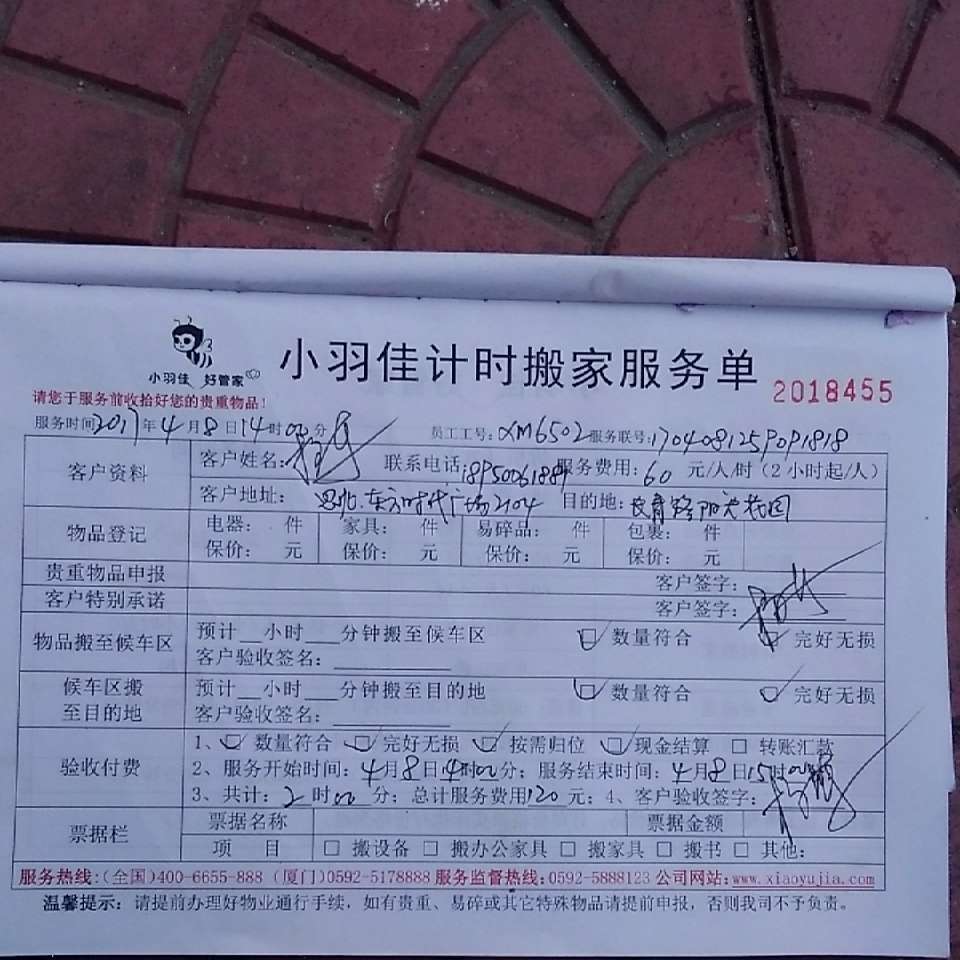 小羽佳 好管家
小羽佳计时搬家服务单
2018455
请您于服务前收拾好您的贵重物品！
服务时间2017年4月8日14时00分 员工工号:XM6502服务联号:1704081259091818
客户资料 客户姓名: 联系电话:18950061889服务费用:60元/人/时（2小时起/人）
客户地址: 思北.东方时代广场2704 目的地:
物品登记 电器: 件 家具: 件 易碎品: 件 包裹: 件
保价: 元 保价: 元 保价: 元 保价: 元
贵重物品申报 客户签字:
客户特别承诺 客户签字:
物品搬至候车区 预计__小时___分钟搬至候车区 数量符合 完好无损
客户验收签名:
候车区搬至目的地 预计__小时___分钟搬至目的地 数量符合 完好无损
客户验收签名:
验收付费 1、数量符合 完好无损 按需归位 现金结算 □ 转账汇款
2、服务开始时间:4月8日14时00分；服务结束时间:4月8日15时
3、共计:2时00分；总计服务费用120元；4、客户验收签字:
票据栏 票据名称 票据金额
项 目 □ 搬设备 □ 搬办公家具 □ 搬家具 □ 搬书 □ 其他:
服务热线:(全国)400-6655-888 (厦门)0592-5178888 服务监督热线:0592-5888123 公司网站:www.xiaoyujia.com
温馨提示: 请提前办理好物业通行手续，如有贵重、易碎或其它特殊物品请提前申报，否则我司不予负责。